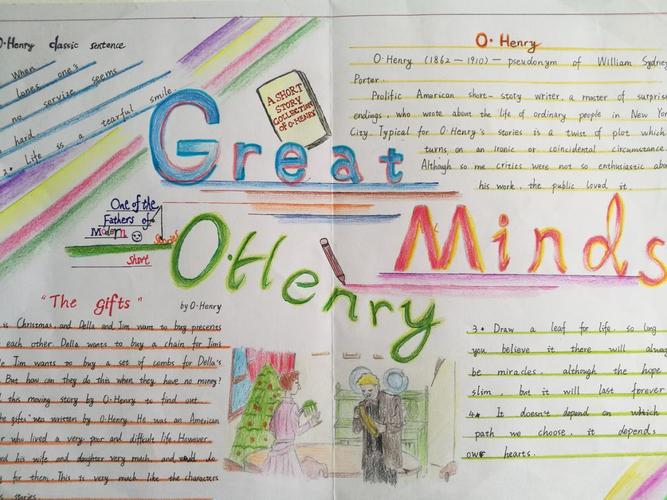 O·Henry classic sentence
When
loves one's
no service seems
hard
2. Life is a tearful smile
A SHORT
STORY
COLLECTION
OF O·HENRY
Great
Minds
O·Henry
One of the
Fathers of
Modern
short
stories
O·Henry
O·Henry (1862 — 1910) — pseudonym of William Sydney
Porter.
Prolific American short-story writer, a master of surprise
endings who wrote about the life of ordinary people in New York
City. Typical for O·Henry's stories is a twist of plot which
turns on an ironic or coincidental circumstance
Although some critics were not so enthusiastic abo
his work, the public loved it.
"The gifts"
by O·Henry
is Christmas and Della and Jim want to buy precents
each other Della wants to buy a chain for Jim's
Jim wants to buy a set of combs for Della's
But how can they do this when they have no money?
this moving story by O·Henry to find out
he gifts" was written by O·Henry. He was an American
r who lived a very poor and difficult life However
ed his wife and daughter very much and would do
g for them. This is very much like the characters
s stories
3. Draw a leaf for life. so long
you believe it there will alway
be miracles. although the hope
slim, but it will last forever
4. It doesn't depend on which
path we choose. it depends
our hearts.